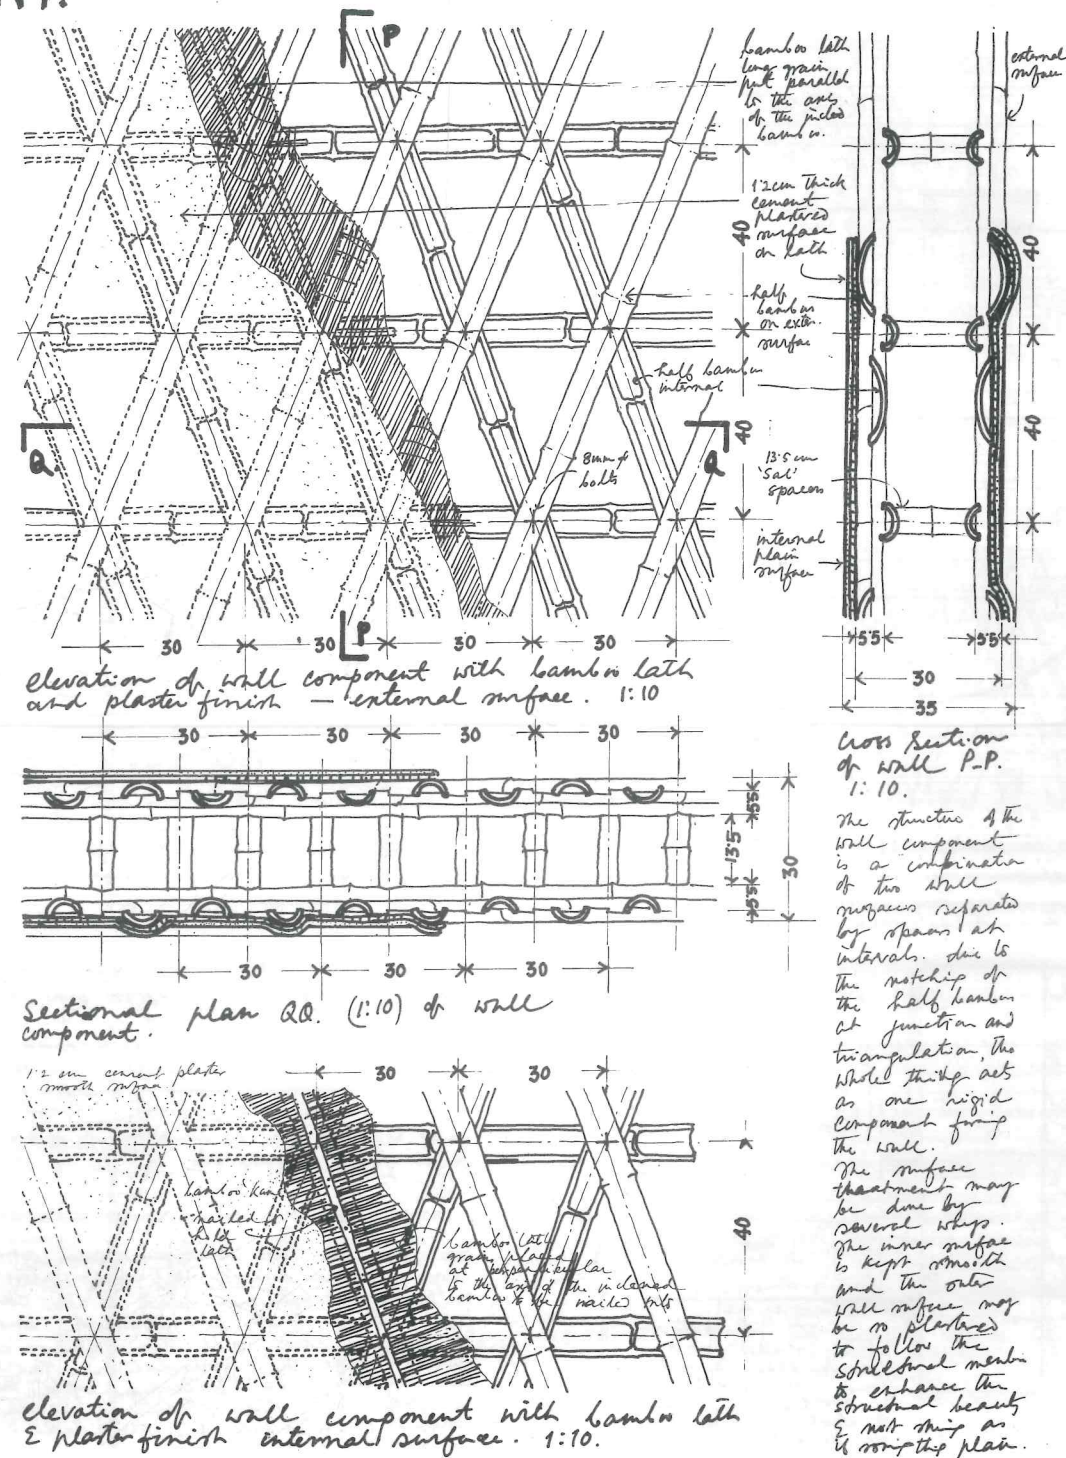 P
bamboo lath
long grain
put parallel
to the axis
of the
bamboo.
external
surface
1.2cm thick
cement
plastered
surface
on lath
40
40
half
bamboo
on exter.
surface
half bamboo
internal
40
40
Q
Q
8mm φ
bolts
13.5 cm
'Sal'
spacers
internal
plain
surface
P
30
30
30
30
5.5
5.5
30
35
elevation of wall component with bamboo lath
and plaster finish — external surface. 1:10
Cross Section
of wall P-P.
1:10.
30
30
30
30
5.5
13.5
5.5
30
30
30
30
Sectional plan QQ. (1:10) of wall
component.
The structure of the
wall component
is a combination
of two wall
surfaces separated
by spacers at
intervals. due to
the notching of
the half bamboo
at junction and
triangulation, the
whole thing acts
as one rigid
component
the wall.
The surface
treatment may
be done by
several ways.
The inner surface
is kept smooth
and the outer
wall surface may
be so plastered
to follow the
structural member
to enhance the
structural beauty
& not as
plain.
1.2 cm cement plaster
smooth surface
30
30
40
bamboo
nailed to
hold
lath
bamboo lath
grain placed
at perpendicular
to the axis of the inclined
bamboo to be nailed
elevation of wall component with bamboo lath
& plaster finish internal surface. 1:10.